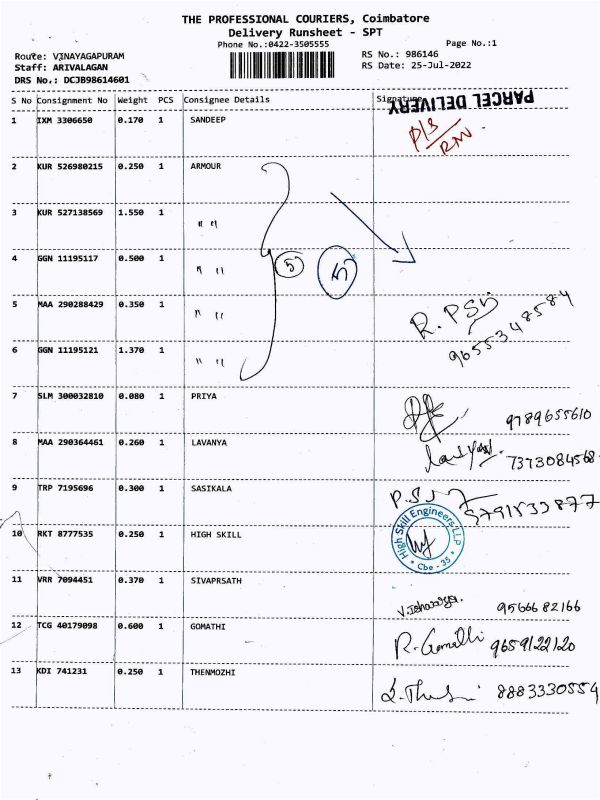 THE PROFESSIONAL COURIERS, Coimbatore
Delivery Runsheet - SPT
Phone No.:0422-3505555
Page No.:1
Route: VINAYAGAPURAM
RS No.: 986146
Staff: ARIVALAGAN
RS Date: 25-Jul-2022
DRS No.: DCJB98614601
S No Consignment No Weight PCS Consignee Details Signature
PARCEL DELIVERY
1 IXM 3306650 0.170 1 SANDEEP
P/S
RM
2 KUR 526980215 0.250 1 ARMOUR
3 KUR 527138569 1.550 1 " "
4 GGN 11195117 0.500 1 " " 5 5
5 MAA 290288429 0.350 1 " "
R. PSri
9655348584
6 GGN 11195121 1.370 1 " "
7 SLM 300032810 0.080 1 PRIYA 9789655610
8 MAA 290364461 0.260 1 LAVANYA 7373084568
9 TRP 7195696 0.300 1 SASIKALA
10 RKT 8777535 0.250 1 HIGH SKILL High Skill Engineers LLP * Cbe - 35 *
11 VRR 7094451 0.370 1 SIVAPRSATH 9566682166
12 TCG 40179098 0.600 1 GOMATHI R. Gomathi 9659122120
13 KDI 741231 0.250 1 THENMOZHI 8883330554